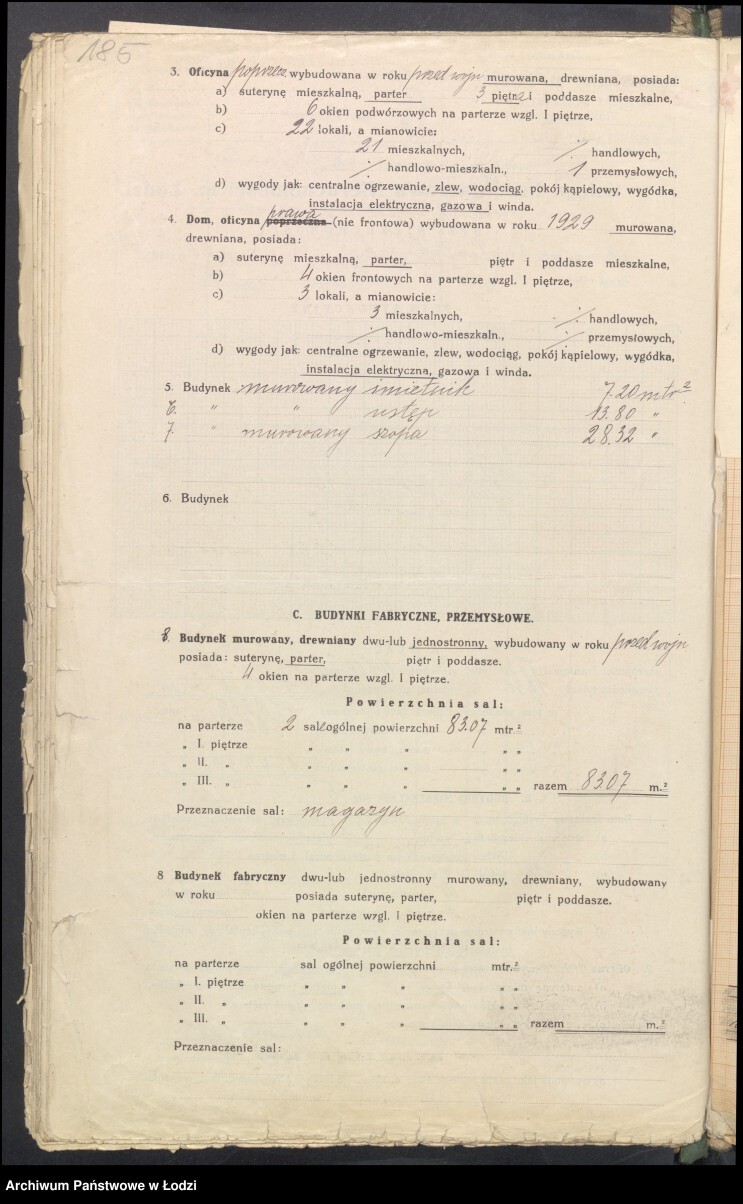 185
3. Oficyna poprzecz. wybudowana w roku przed wojn murowana, drewniana, posiada:
a) suterynę mieszkalną, parter 3 piętra i poddasze mieszkalne,
b) 6 okien podwórzowych na parterze wzgl. I piętrze,
c) 22 lokali, a mianowicie:
21 mieszkalnych, ./. handlowych,
./. handlowo-mieszkaln., 1 przemysłowych,
d) wygody jak: centralne ogrzewanie, zlew, wodociąg, pokój kąpielowy, wygódka,
instalacja elektryczna, gazowa i winda.
prawa
4. Dom, oficyna poprzeczna (nie frontowa) wybudowana w roku 1929 murowana,
drewniana, posiada:
a) suterynę mieszkalną, parter, piętr i poddasze mieszkalne,
b) 4 okien frontowych na parterze wzgl. I piętrze,
c) 3 lokali, a mianowicie:
3 mieszkalnych, ./. handlowych,
./. handlowo-mieszkaln., ./. przemysłowych,
d) wygody jak: centralne ogrzewanie, zlew, wodociąg, pokój kąpielowy, wygódka,
instalacja elektryczna, gazowa i winda.
5. Budynek murowany śmietnik 7.20 mtr²
6. " " ustęp 13.80 "
7. " murowany szopa 28.32 "
6. Budynek
C. BUDYNKI FABRYCZNE, PRZEMYSŁOWE.
8. Budynek murowany, drewniany dwu-lub jednostronny, wybudowany w roku przed wojn
posiada: suterynę, parter, piętr i poddasze.
4 okien na parterze wzgl. I piętrze.
Powierzchnia sal:
na parterze 2 sale ogólnej powierzchni 83.07 mtr.²
" I. piętrze " " " " "
" II. " " " " " "
" III. " " " " " " razem 83.07 m.²
Przeznaczenie sal: magazyn
8 Budynek fabryczny dwu-lub jednostronny murowany, drewniany, wybudowany
w roku posiada suterynę, parter, piętr i poddasze.
okien na parterze wzgl. I piętrze.
Powierzchnia sal:
na parterze sal ogólnej powierzchni mtr.²
" I. piętrze " " " " "
" II. " " " " " "
" III. " " " " " " razem m.²
Przeznaczenie sal:
Archiwum Państwowe w Łodzi